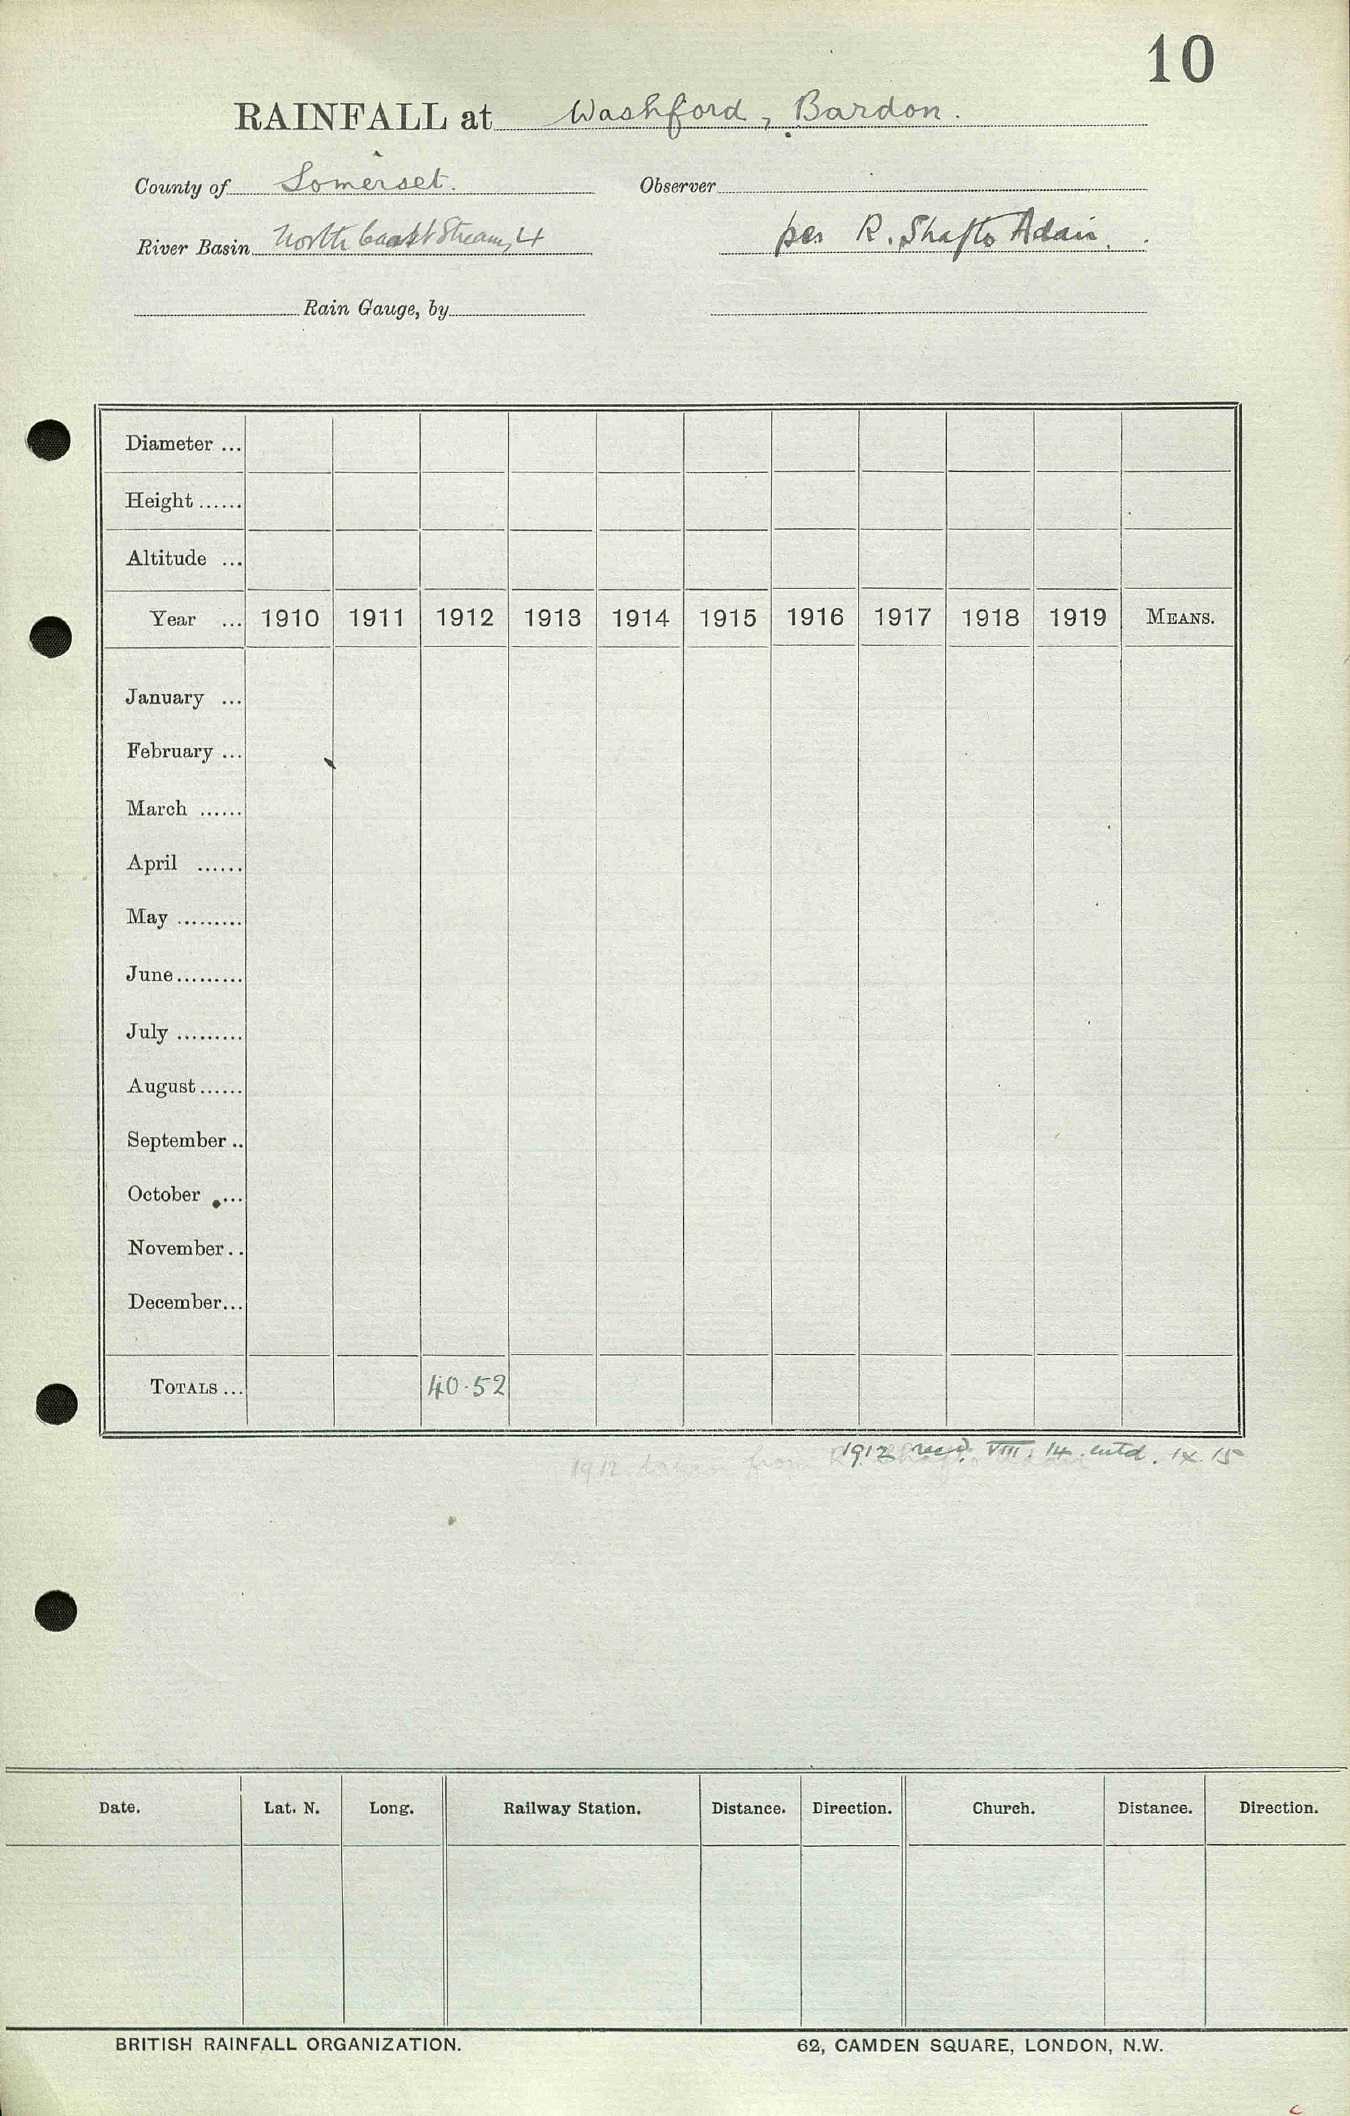 10
RAINFALL at Washford, Bardon.
County of Somerset. Observer
River Basin North Coast Streams 4 per R. Shafto Adair.
Rain Gauge, by
Diameter ...
Height ......
Altitude ...
Year ... 1910 1911 1912 1913 1914 1915 1916 1917 1918 1919 MEANS.
January ...
February ...
March ......
April ......
May .........
June .........
July .........
August ......
September ..
October ....
November ..
December ...
TOTALS ... 40.52
1912 recd. VIII. 14. entd. IX 15
1912 taken from R. Shafto Adair
Date. Lat. N. Long. Railway Station. Distance. Direction. Church. Distance. Direction.
BRITISH RAINFALL ORGANIZATION. 62, CAMDEN SQUARE, LONDON, N.W.
c